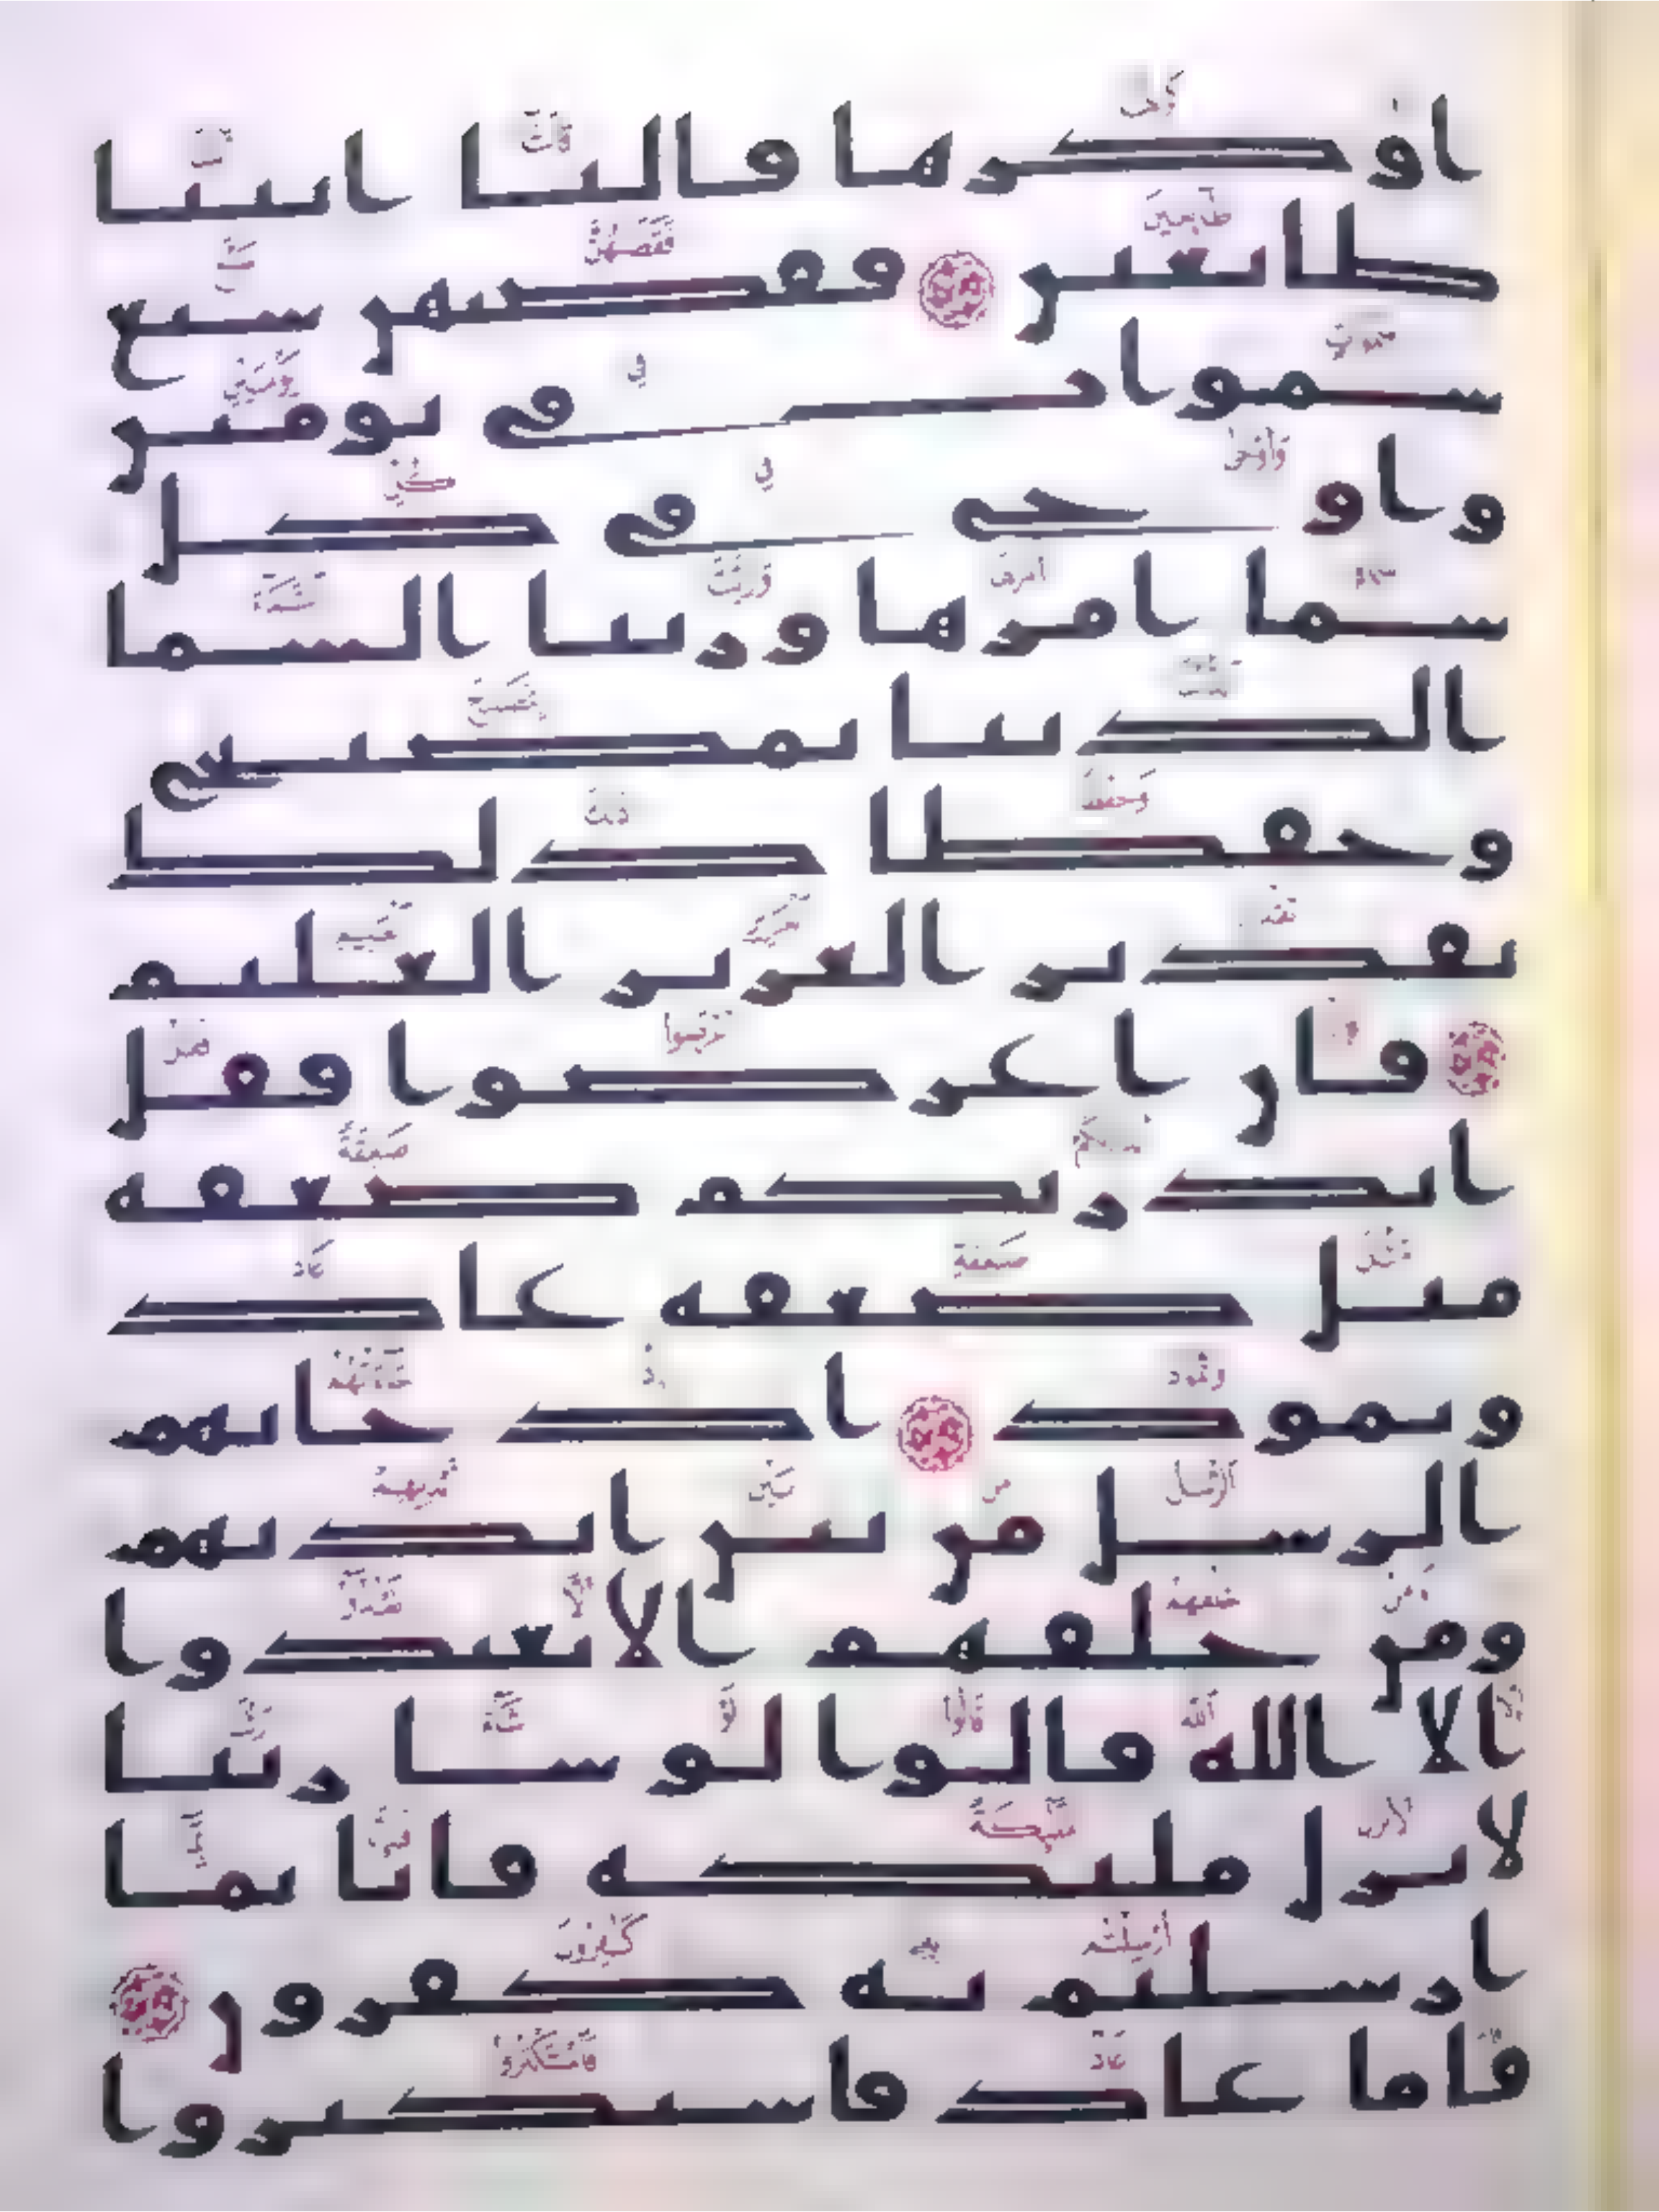 او كرها قالتا اتينا
طايعين فقضيهن سبع
سموات في يومين
واوحى في كل
سما امرها وزينا السما
الدنيا بمصبيح
وحفظا ذلك
تقدير العزيز العليم
فان اعرضوا فقل
انذرتكم صعقه
مثل صعقه عاد
وثمود اذ جاتهم
الرسل من بين ايديهم
ومن خلفهم الا تعبدوا
الا الله قالوا لو شا ربنا
لانزل مليكه فانا بما
ارسلتم به كفرون
فاما عاد فاستكبروا